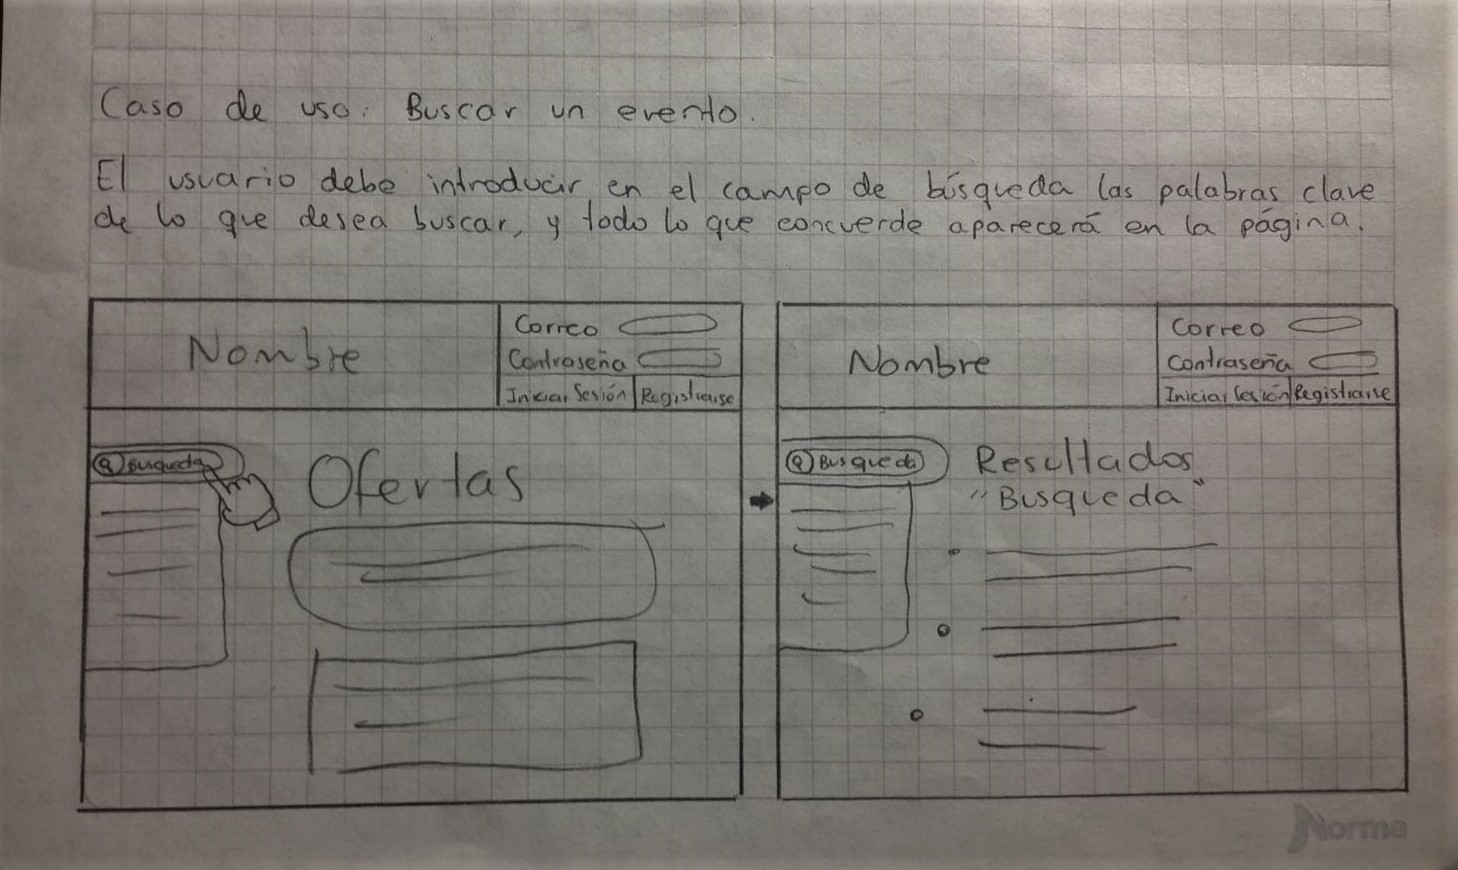 Caso de uso: Buscar un evento.
El usuario debe introducir en el campo de búsqueda las palabras clave
de lo que desea buscar, y todo lo que concuerde aparecerá en la página.
Nombre
Correo
Contraseña
Iniciar Sesión Registrarse
Busqueda
Ofertas
Nombre
Correo
Contraseña
Iniciar Sesión Registrarse
Busqueda
Resultados
"Busqueda"
Norma